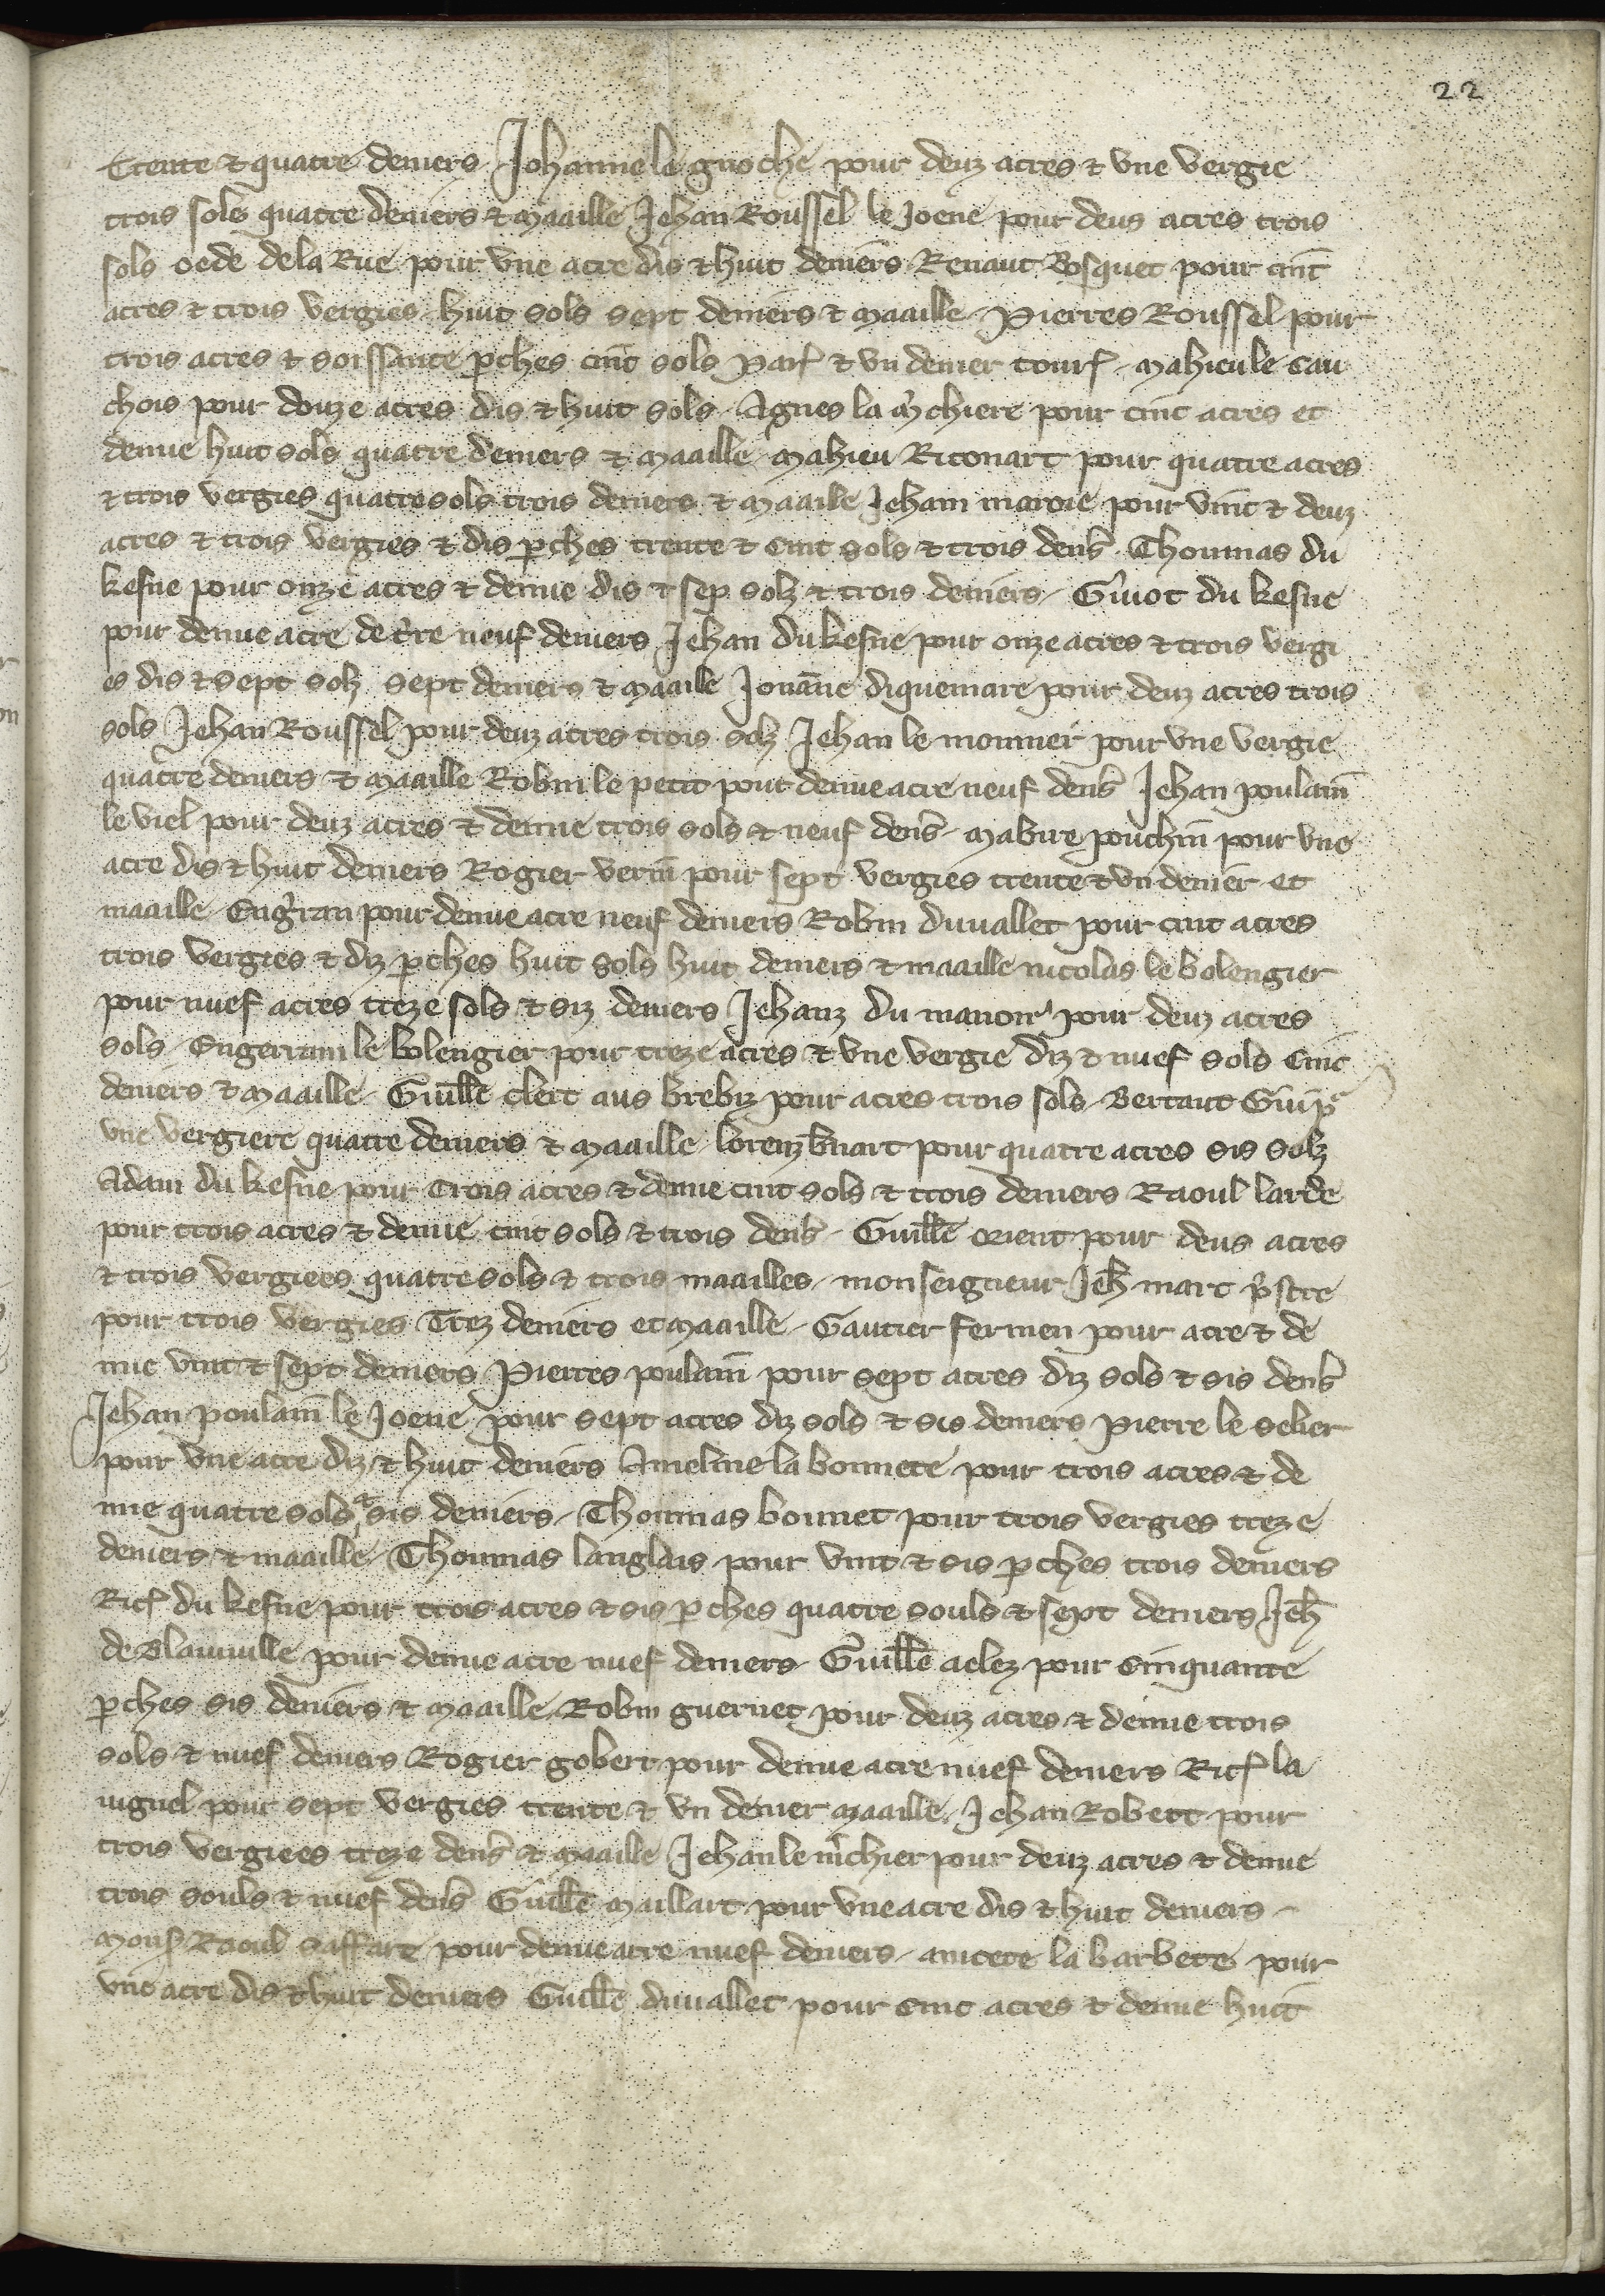 22
trente & quatre deniers Johanne la guoche pour deuz acres & vne vergie
trois sols quatre deniers & maaille Jehan Roussel le Joene pour deus acres trois
sols oede de la Rue pour vne acre dis & huit deniers Renaut Bosquet pour cinc
acres & trois vergies huit sols sept deniers & maaille Pierres Roussel pour
trois acres & soissante ꝑches cinc sols Parꝭ & vn denier tourꝭ mahieu le cau
chois pour douze acres dis & huit sols Agnes la m̾chiere pour cinc acres et
demie huit sols quatre deniers & maaille mahieu Riconart pour quatre acres
& trois vergies quatre sols trois deniers & maaille Jeham maroie pour vint & deuz
acres & trois vergies & dis ꝑches trente & cinc sols & trois den̄s Thoumas du
kesne pour onze acres & demie dis & sep solz & trois deniers Guiot du kesne
pour demie acre de t̾re neuf deniers Jehan du kesne pour onze acres & trois vergi
es dis & sept solz sept deniers & maaille Jouan̄e diquemare pour deuz acres trois
sols Jehan Roussel pour deuz acres trois solz Jehan le mounier pour vne vergie
quatre deniers & maaille Robin le petit pour demie acre neuf den̄s Jehan poulain
le viel pour deuz acres & demie trois sols & neuf den̄s mabire pouchin pour vne
acre dis & huit deniers Rogier verin pour sept vergies trente & vn denier et
maaille Eng̾ran pour demie acre neuf deniers Robin duuallet pour cinc acres
trois vergies & diz ꝑches huit sols huit deniers & maaille nicolas le bolengier
pour nuef acres treze sols & siz deniers Jehanz du manoir pour deuz acres
sols Engerran le bolengier pour treze acres & vne vergie diz & nuef sols cinc
deniers & maaille Guill̄e clerc aus brebiz pour acres trois sols Bertaut Gui pͬ
vne vergiere quatre deniers & maaille lorenz buart pour quatre acres sis solz
Adam du kesne pour trois acres & demie cinc sols & trois deniers Raoul larde
pour trois acres & demie cinc sols & trois den̄s Guill̄e orient pour deus acres
& trois vergiees quatre sols & trois maailles monseigneur Jeh̄ marc p̾stre
pour trois vergies Trez deniers et maaille Gautier fermen pour acre & de
mie vint & sept deniers Pierres poulain pour sept acres diz sols & sis den̄s
Jehan poulain le Joene pour sept acres diz sols & sis deniers Pierre le selier
pour vne acre diz & huit deniers Ameline la bonnete pour trois acres & de
mie quatre sols & sis deniers Thoumas bonnet pour trois vergies treze
deniers & maaille Thoumas langlais pour vint & sis ꝑches trois deniers
Ricꝭ du kesne pour trois acres & sis ꝑches quatre souls & sept deniers Jeh̄
de Blainuille pour demie acre nuef deniers Guill̄e aclez pour cinquante
ꝑches sis deniers & maaille Robin guernet pour deuz acres & demie trois
sols & nuef deniers Rogier gobert pour demie acre nuef deniers Ricꝭ la
niguel pour sept vergies trente & vn denier maaille Jehan Robert pour
trois vergiees treze den̄s & maaille Jehan le m̾chier pour deuz acres & demie
trois souls & nuef den̄s Guill̄e maillart pour vne acre dis & huit deniers
monsꝭ Raoul saffare pour demie acre nuef deniers amcete la barbete pour
vne acre dis & huit deniers Guill̄e duuallet pour cinc acres & demie huit